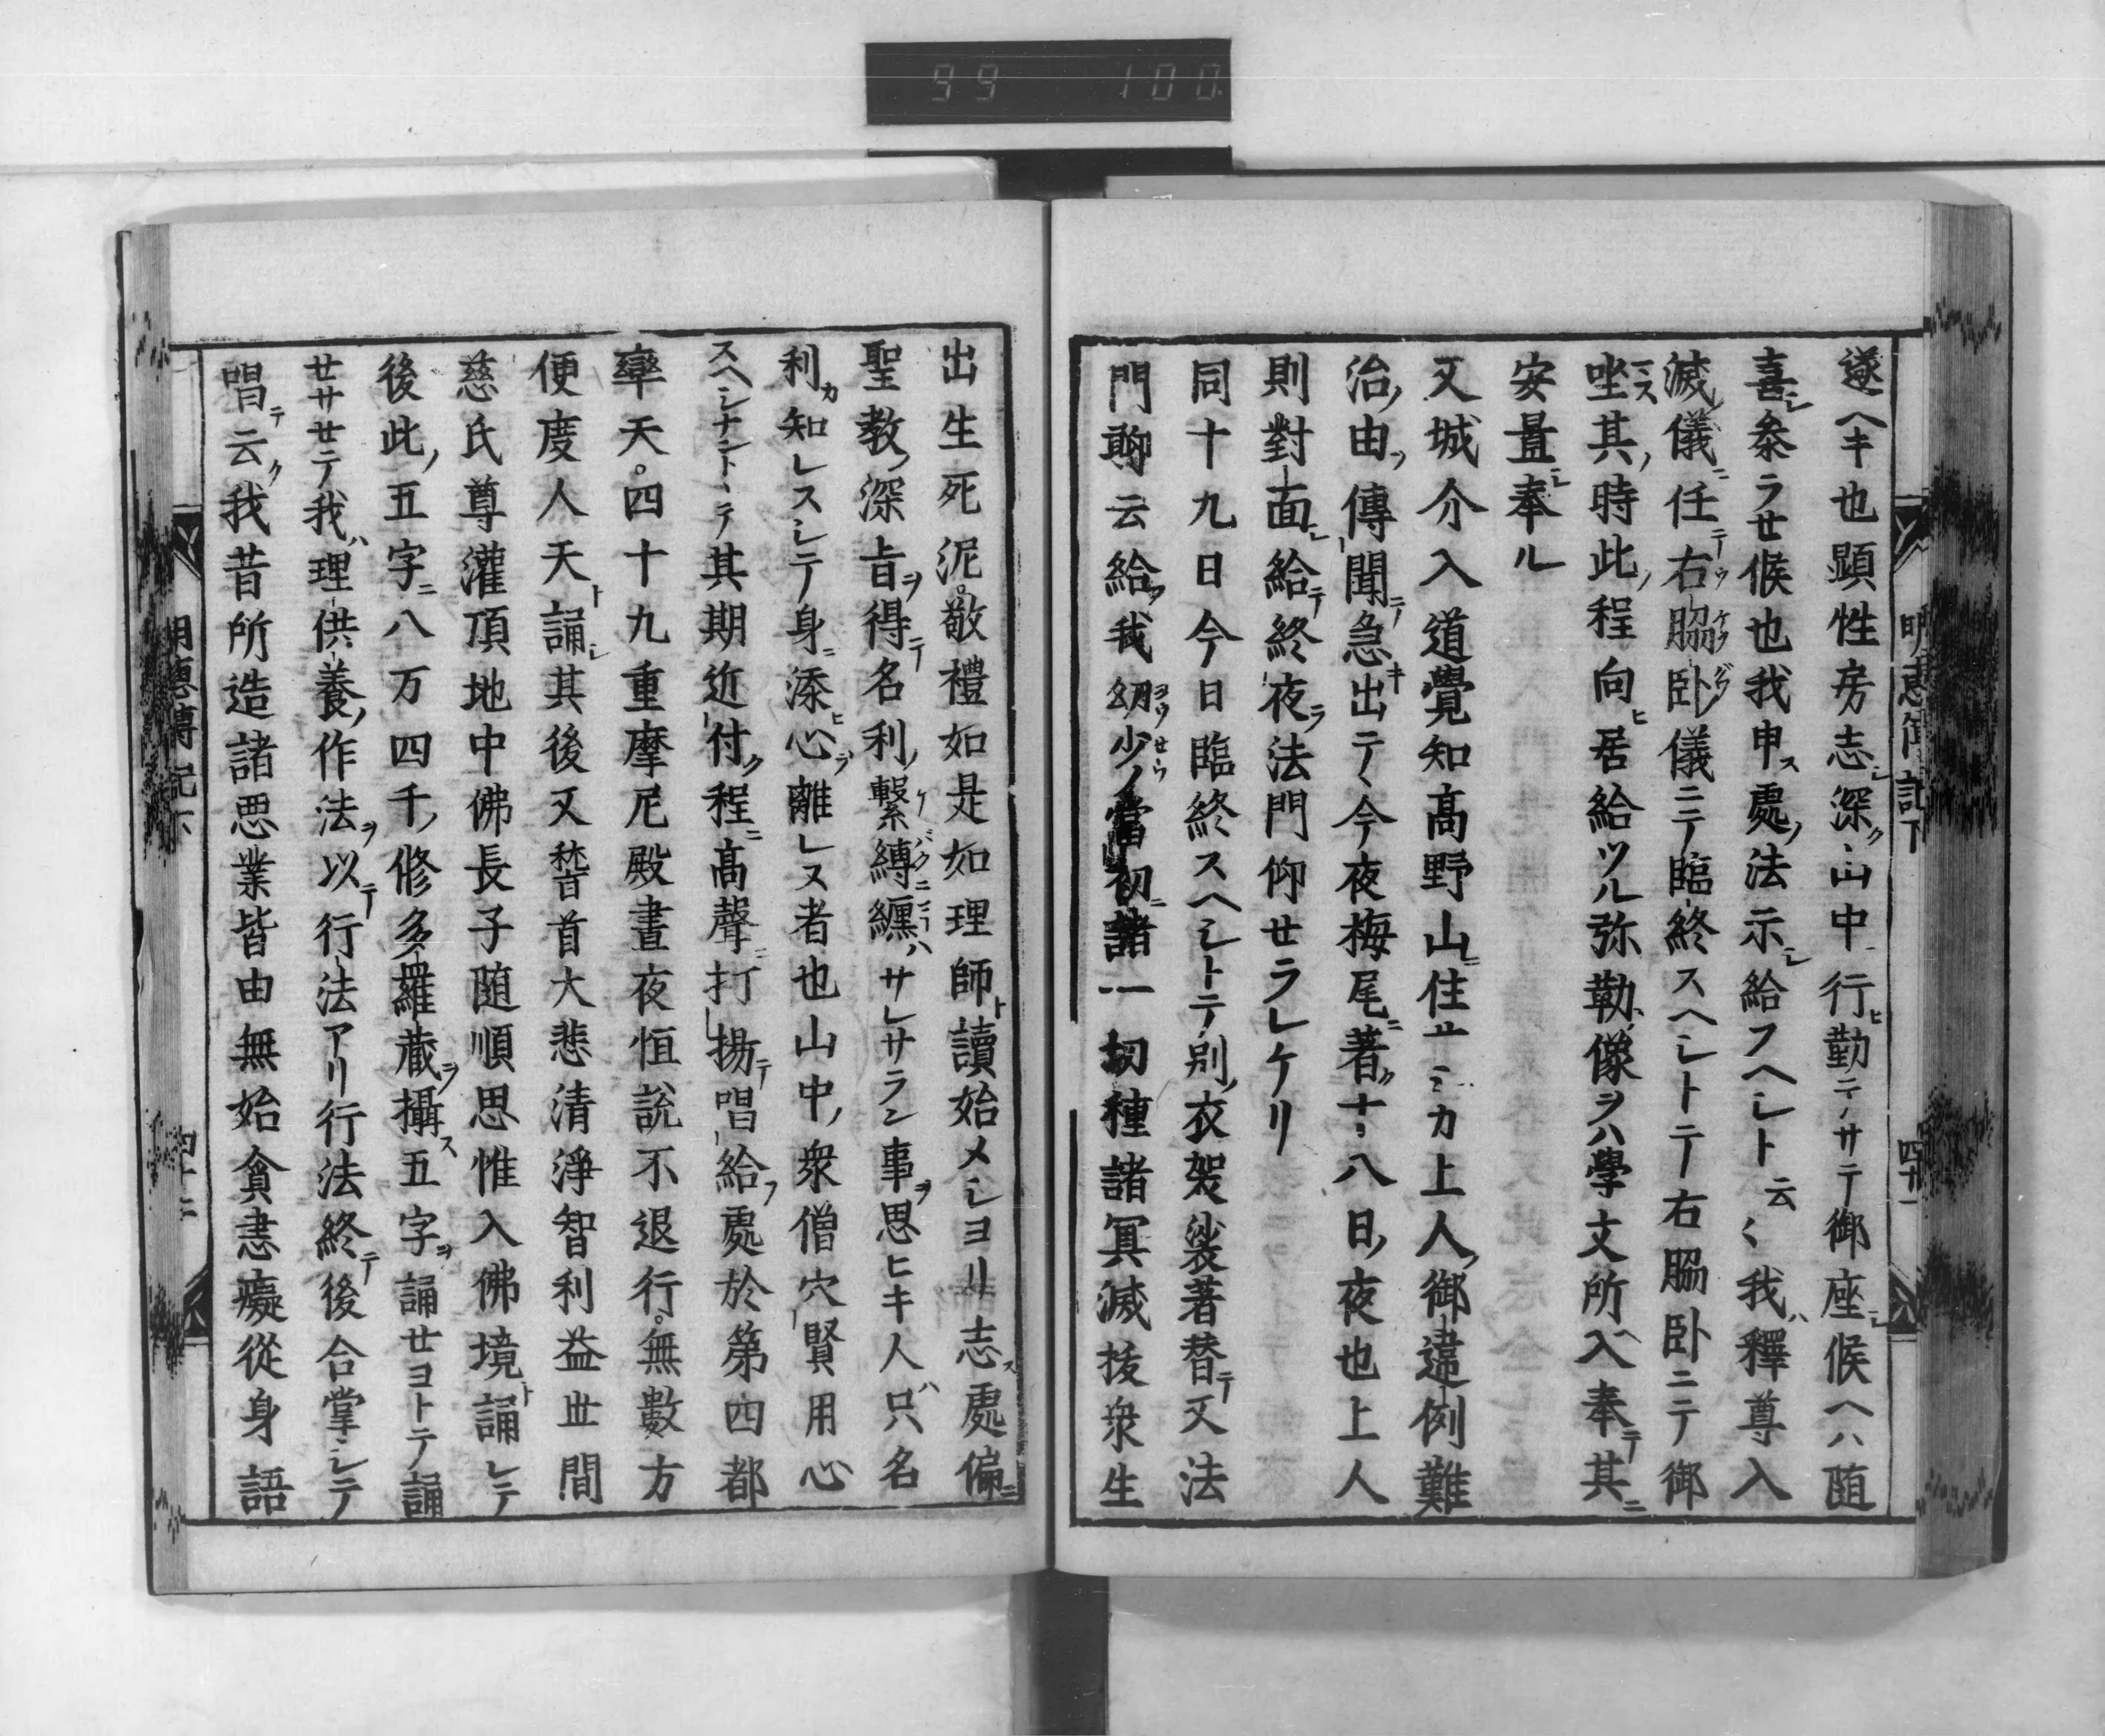 99 100
明恵傳記下 四十一
遂ヘキ也顕性房志深ク山中行ヒ勤テノサテ御座シ候ヘハ随
喜シ叅ラセ候也我申ス處ノ法示シ給フヘシト云〱我ハ釋尊入
滅儀ニ任テ右脇卧儀ニテ臨終スヘシトテ右脇卧ニテ御
坐ス其ノ時此ノ程向ヒ居給ツル弥勒ノ像ヲハ學文所ヘ入奉テ其ニ
安置シ奉ル
又城介入道覺知高野山ニ住上人ノ御違例難
治ノ由ヲ傳聞テ急キ出テ今夜梅尾ニ著ク十八日ノ夜也上人
則對面シ給テ終夜ラ法門仰セラレケリ
同十九日今日臨終スヘシトテ別ノ衣袈裟著替テ又法
門聊云給フ我幼少ノ當初ニ諸一切種諸冥滅抜衆生
出生死泥。敬禮如是如理師ト讀始メシヨリ志ス處偏ニ
聖教ノ深旨ヲ得テ名利ノ繋縛ニ纒ハサレサラン事ヲ思ヒキ人ハ只名
利カ知レスシテ身ニ添ヒ心ヲ離レヌ者也山中ノ衆僧穴賢用心
スヘシナントヽテ其期近付ク程ニ高聲ニ打揚テ唱給フ處於第四都
率天。四十九重摩尼殿晝夜恒説不退行。無數方
便度人天ト誦シ其後又䅻首大悲清淨智利益世間
慈氏尊灌頂地中佛長子随順思惟入佛境ト誦シテ
後此ノ五字ニ八万四千ノ修多羅蔵ヲ攝ス五字ヲ誦セヨトテ誦
セサセテ我ハ理供養ノ作法ヲ以テ行法アリ行法終テ後合掌シテ
唱テ云ク我昔所造諸悪業皆由無始貪恚癡從身語
明恵傳記下 四十二